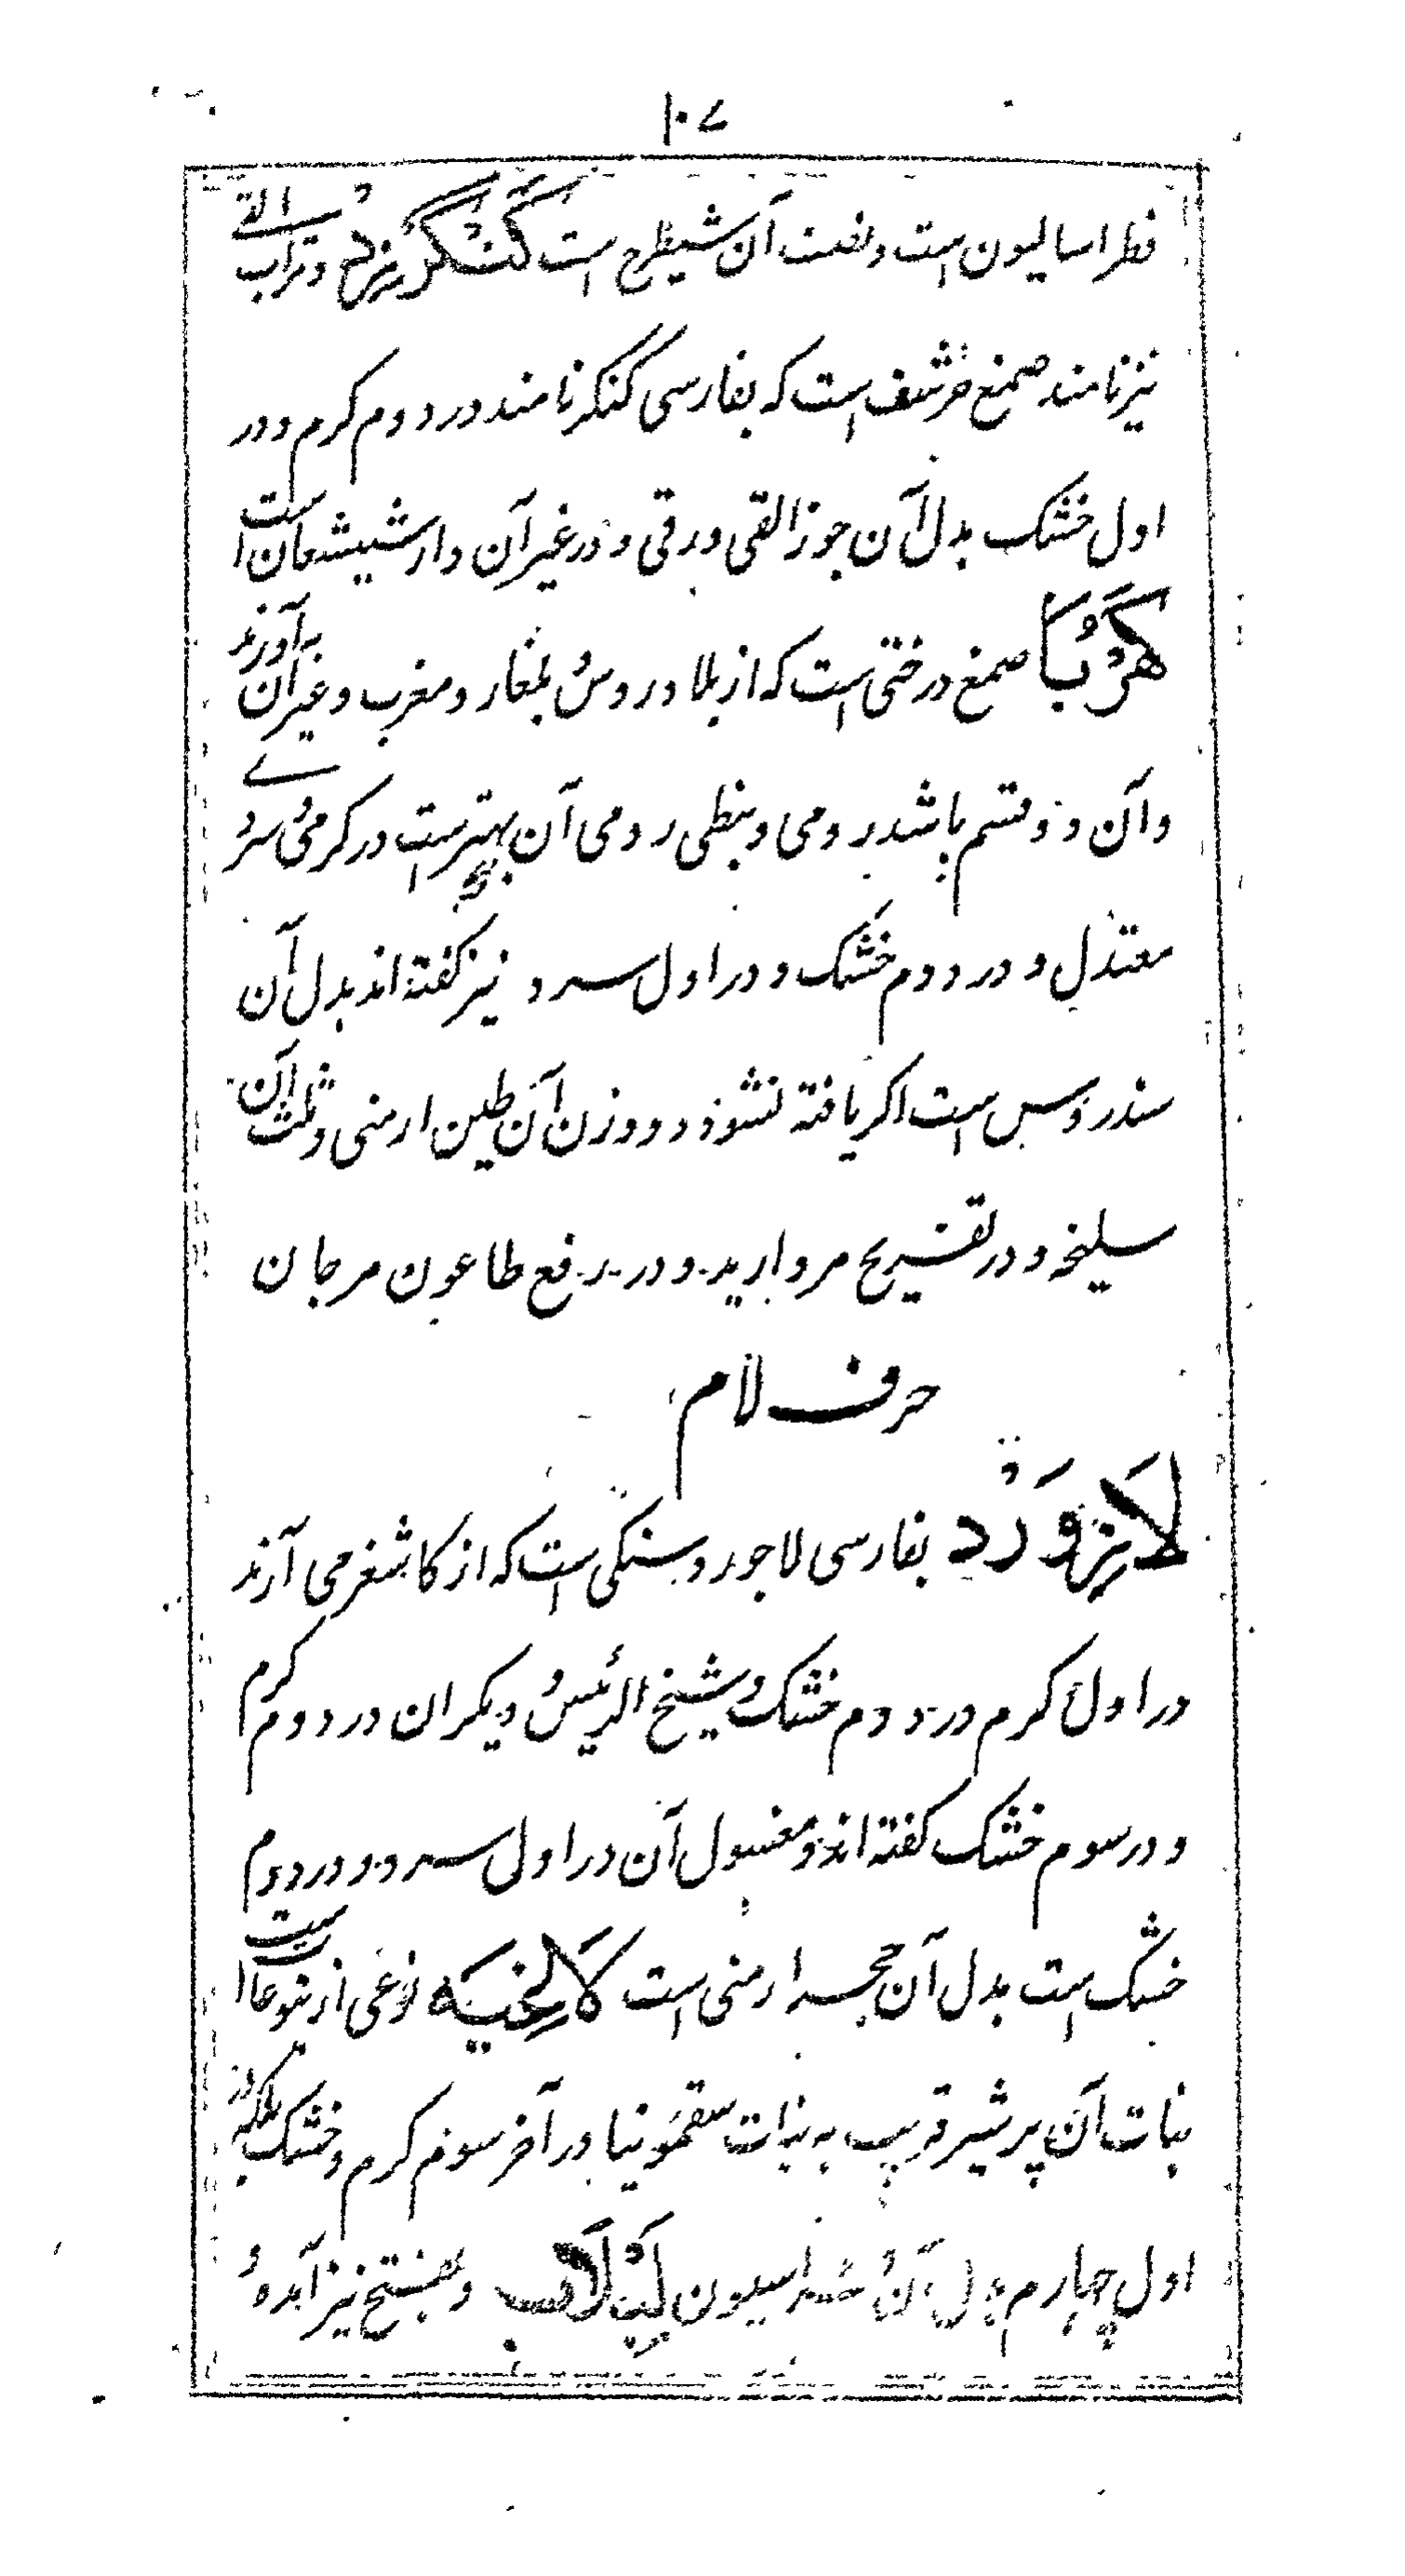 ۱۰۷
فطراسالیون است و نصف آن شیطرج است کنکرزد و تراب القے
نیز نامند صمغ حرشف است که بفارسی کنکر نامند در دوم کرم و در
اول خشک بدل آن جوز القی و در قی و در غیر آن دارشیشعان است
کهربا صمغ درختی است که از بلاد روس و بلغار و مغرب و غیر آن به آورند
و آن دو قسم باشد رومی و نبطی رومی آن بهتر است در کرمی و سردے
معتدل و در دوم خشک و در اول سرد نیز کفته اند بدل آن
سندروس است اکر یافته نشود دو وزن آن طین ارمنی و ثلث آن
سلیخه و در تفریح مروارید و در رفع طاعون مرجان
حرف لام
لازورد بفارسی لاجورد سنکی است که از کاشغر می آرند
در اول کرم در دوم خشک و شیخ الرئیس و دیکران در دوم کرم
و در سوم خشک کفته اند و مغسول آن در اول سرد و در دوم
خشک است بدل آن حجر ارمنی است لاغیه نوعی از یتوعات است
نبات آن پر شیر قریب به نبات سقمونیا در آخر سوم کرم و خشک بلکه در
اول چهارم بدل آن فراسیون لبلاب و بفتح نیز آمده